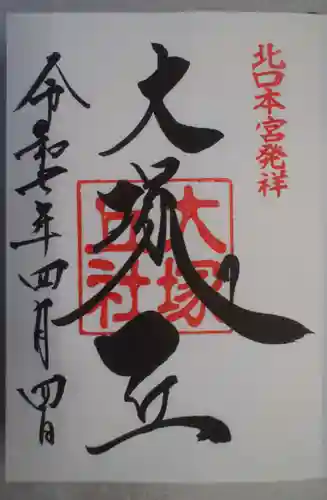 北口本宮発祥
大塚丘
大塚
丘社
令和七年四月四日